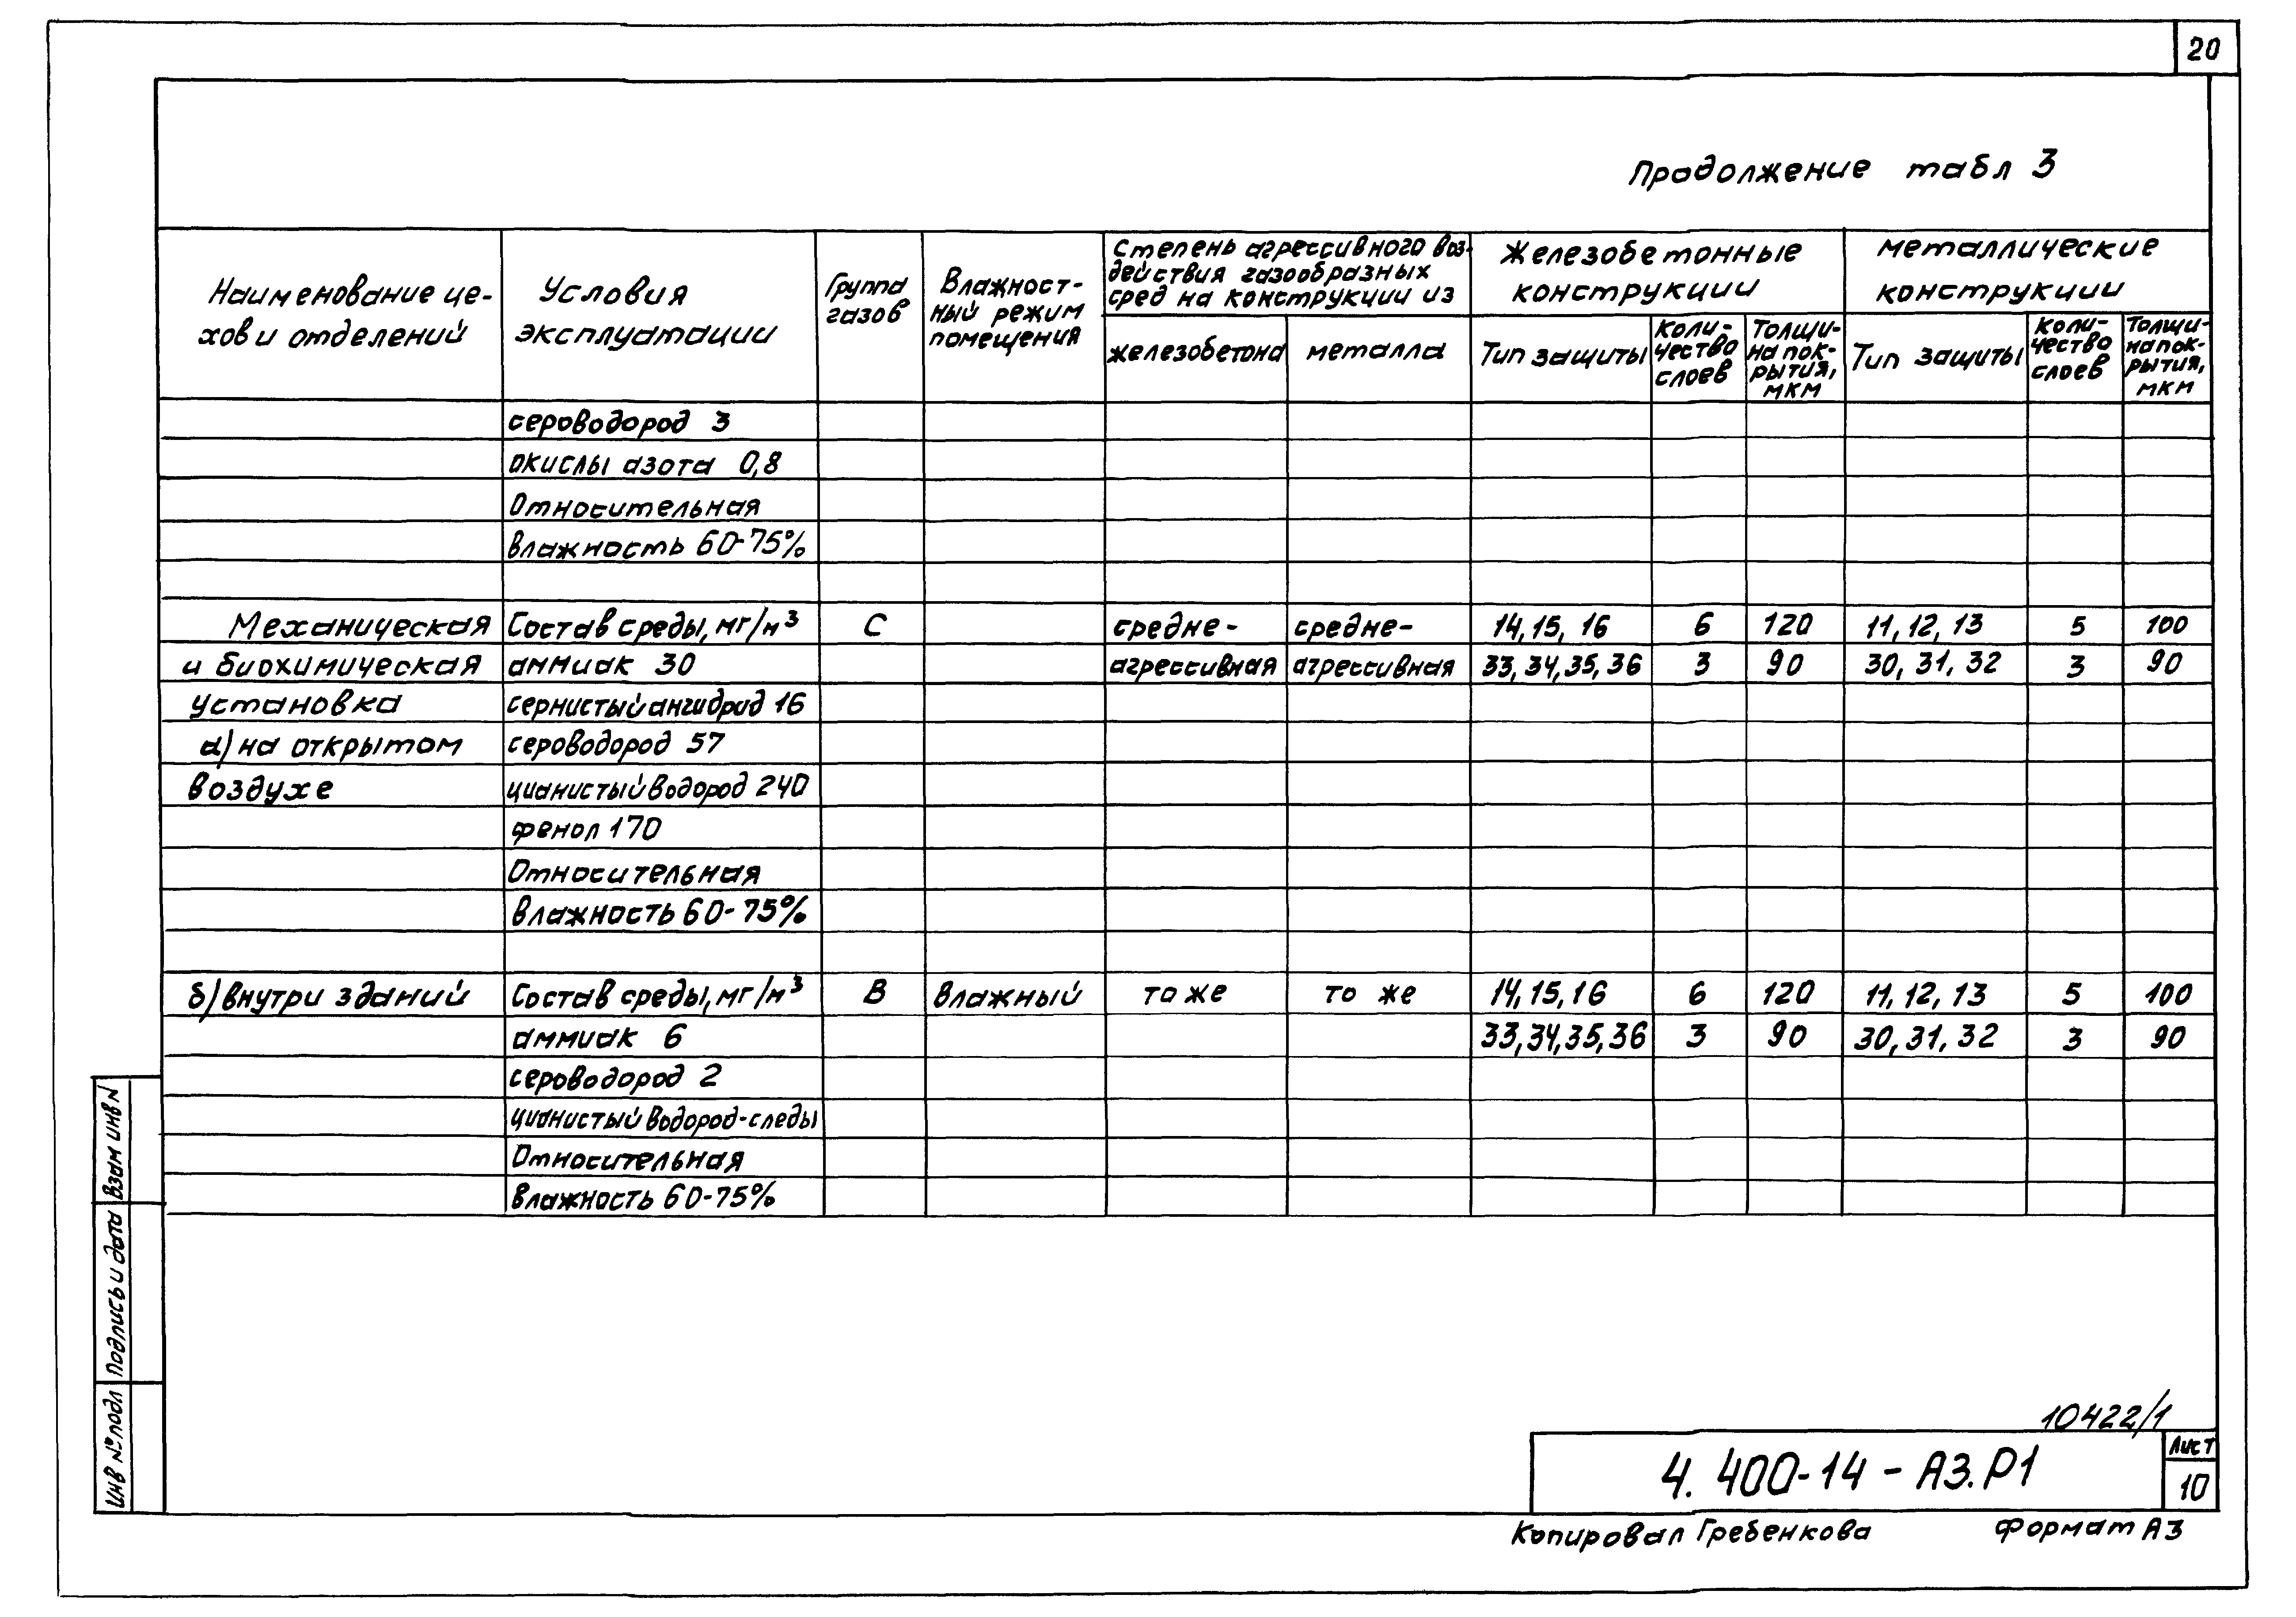 20
Продолжение табл 3
Наименование це-
хов и отделений
Условия
эксплуатации
Группа
газов
Влажност-
ный режим
помещения
Степень агрессивного воз-
действия газообразных
сред на конструкции из
железобетона
металла
Железобетонные
конструкции
Тип защиты
Коли-
чество
слоев
Толщи-
на пок-
рытия,
мкм
Металлические
конструкции
Тип защиты
Коли-
чество
слоев
Толщи-
на пок-
рытия,
мкм
сероводород 3
окислы азота 0,8
Относительная
влажность 60-75%
Механическая Состав среды, мг/м³ С средне- средне- 14, 15, 16 6 120 11, 12, 13 5 100
и биохимическая аммиак 30 агрессивная агрессивная 33, 34, 35, 36 3 90 30, 31, 32 3 90
установка сернистый ангидрид 16
а) на открытом сероводород 57
воздухе цианистый водород 240
фенол 170
Относительная
влажность 60-75%
б) внутри зданий Состав среды, мг/м³ В влажный то же то же 14, 15, 16 6 120 11, 12, 13 5 100
аммиак 6 33, 34, 35, 36 3 90 30, 31, 32 3 90
сероводород 2
цианистый водород-следы
Относительная
влажность 60-75%
Взам инв N
Подпись и дата
Инв № подл
10422/1
4.400-14-АЗ.Р1
Лист
10
Копировал Гребенкова Формат А3